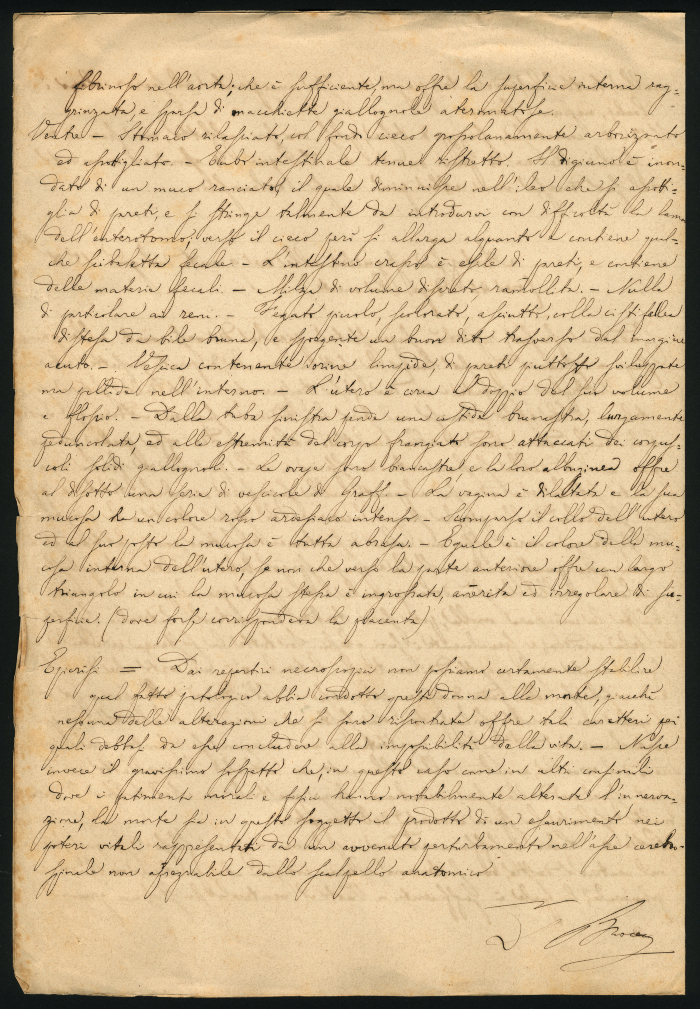 fibrinoso nell'aorta; che è sufficiente, ma offre la superficie interna rag=
grinzata, e sparsa di macchiette giallognole ateromatose.
Ventre — Stomaco rilassiato, col fondo cieco grossolanamente arborizzato
ed assotigliato. — Tubo intestinale tenue ristretto. Il digiuno è inon=
dato di un muco ranciato, il quale diminuisce nell'ileo che si assotti=
glia di pareti, e si stringe talmente da introdurvi con difficoltà la lama
dell'enterotomo; verso il cieco però si allarga alquanto e contiene qual=
che scibaletta fecale — L'intestino crasso è esile di pareti, e contiene
delle materie fecali. — Milza di volume discreto, ramollita. — Nulla
di particolare ai reni. — Fegato picolo, scolorato, asciutto, colla cisti fellea
distesa da bile bruna, e sporgente un buon dito trasverso dal margine
acuto. — Vessica contenente orine limpide, di pareti piuttosto sviluppate
ma pallida nell'interno. — L'utero è circa il doppio del suo volume
e flosio. — Dalla tuba sinistra pende una cistide brunastra, lungamente
peduncolata, ed alle estremità del corpo frangiato sono attaccati dei corpus=
coli solidi giallognoli. — Le ovaje sono biancastre, e la loro albuginea offre
al disotto una serie di vesicole di Graff. — La vagina è dilatata e la sua
mucosa ha un colore rosso ardesiaco intenso. — Scomparso il collo dell'utero
ed al suo posto la mucosa è tutta abrasa. — Eguale è il colore della mu=
cosa interna dell'utero, se non che verso la parte anteriore offre un largo
triangolo in cui la mucosa stessa è ingrossata, annerita ed irregolare di su=
perficie. (dove forse corrispondeva la placenta)
Epicrisi = Dai reperti necroscopici non possiamo certamente stabilire
qual fatto patologico abbia condotto questa donna alla morte, giacchè
nessuna delle alterazioni che si sono riscontrate offre tali caratteri pei
quali debbasi da essa concludere alla impossibilità della vita. — Nasce
invece il gravissimo sospetto che, in questo caso come in altri consimili
dove i patimenti morali e fisici hanno notabilmente alterata l'innerva=
zione, la morte sia in questo soggetto il prodotto di un esaurimento nei
poteri vitali rappresentati da un avvenuto perturbamento nell'asse cerebro=
spinale non assegnabile dallo scalpello anatomico